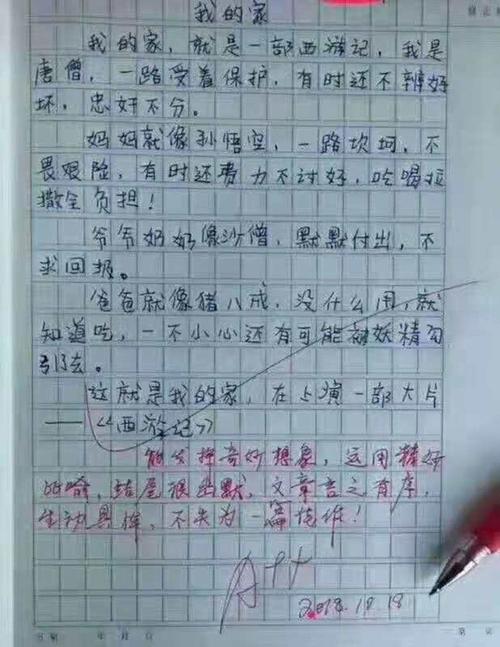 我的家
我的家，就是一部西游记，我是
唐僧，一路受着保护，有时还不辨好
坏，忠奸不分。
妈妈就像孙悟空，一路坎坷，不
畏艰险，有时还费力不讨好，吃喝拉
撒全负担！
爷爷奶奶像沙僧，默默付出，不
求回报。
爸爸就像猪八戒，没什么用，就
知道吃，一不小心还有可能被妖精勾
引去。
这就是我的家，在上演一部大片
——《西游记》
能发挥奇妙想象，运用精妙
的喻，结尾很幽默，文章言之有序，
生动具体，不失为一篇佳作！
A++
2018.10.18
年 月 日